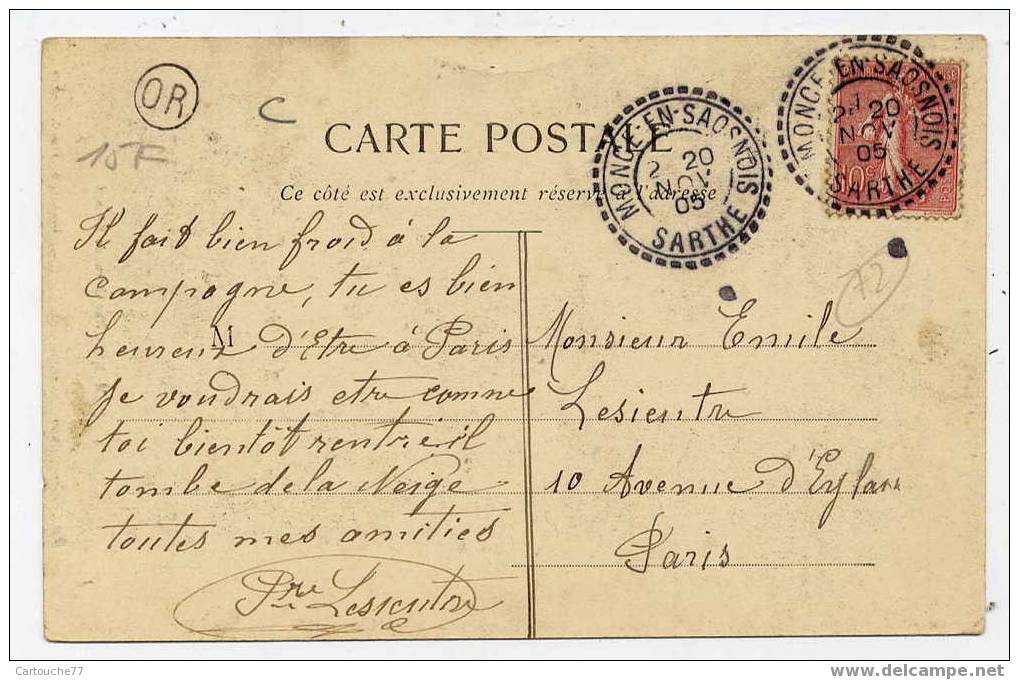 OR
C
15F
CARTE POSTALE
Ce côté est exclusivement réservé à l'adresse
MONCE-EN-SAOSNOIS
20
NOV
05
SARTHE
MONCE-EN-SAOSNOIS
20
NOV
05
SARTHE
72
Il fait bien froid à la
campagne, tu es bien
heureux d'Etre à Paris
Je voudrais etre comme
toi bientôt rentré il
tombe de la Neige
toutes mes amitiés
Pre Lesientre
M
Monsieur Emile
Lesientre
10 Avenue d'Eylau
Paris
Cartouche77
www.delcampe.net